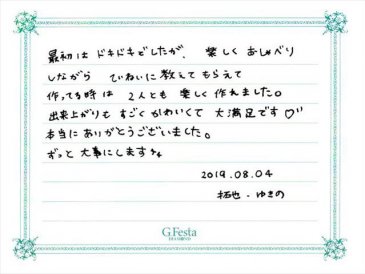 最初は ドキドキでしたが、 楽しく おしゃべり
しながら ていねいに 教えて もらえて
作ってる時は 2人とも 楽しく 作れました。
出来上がりも すごく かわいくて 大満足です♡
本当に ありがとうございました。
ずっと 大事にします
2019.08.04
拓也・ゆきの
G.Festa
DIAMOND